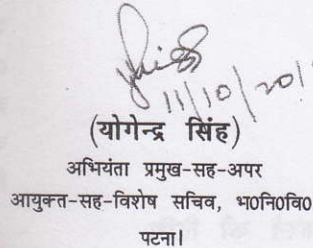 11/10/201
(योगेन्द्र सिंह)
अभियंता प्रमुख-सह-अपर
आयुक्त-सह-विशेष सचिव, भ0नि0वि0
पटना।